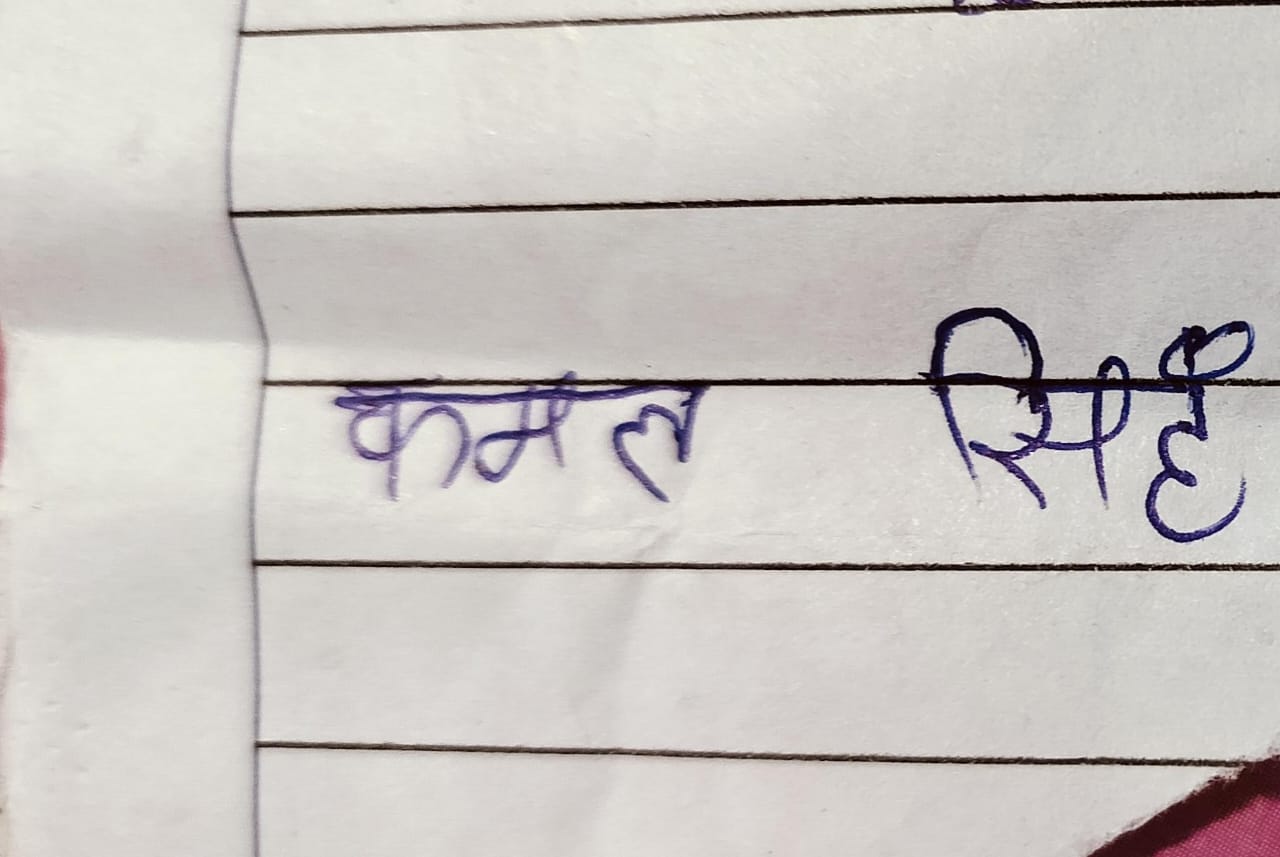 कमल सिहँ